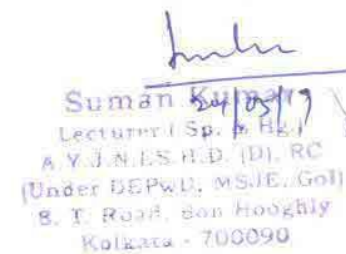 Suman Kumar
Lecturer (Sp. & Hg.)
A.Y.J.N.I.S.H.D. (D), RC
(Under DEPwD, MSJE, GoI)
B. T. Road, Bon Hooghly
Kolkata - 700090